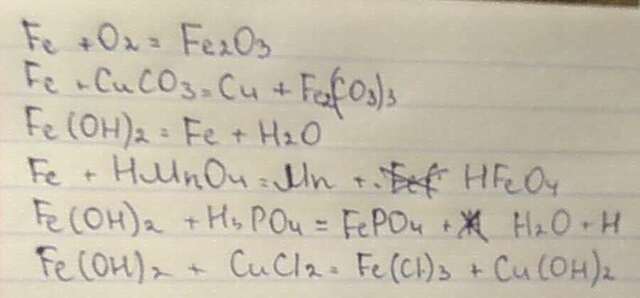 Fe + O2 = Fe2O3
Fe + CuCO3 = Cu + Fe2(CO3)3
Fe(OH)2 = Fe + H2O
Fe + HMnO4 = Mn + HFeO4
Fe(OH)2 + H3PO4 = FePO4 + H2O + H
Fe(OH)2 + CuCl2 = Fe(Cl)3 + Cu(OH)2